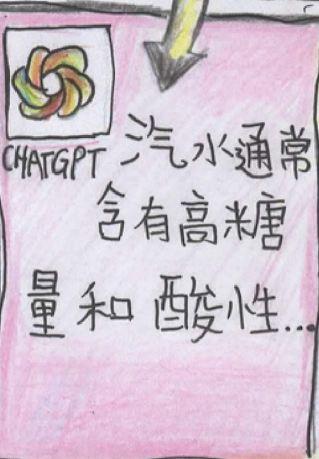 CHATGPT
汽水通常
含有高糖
量和酸性...